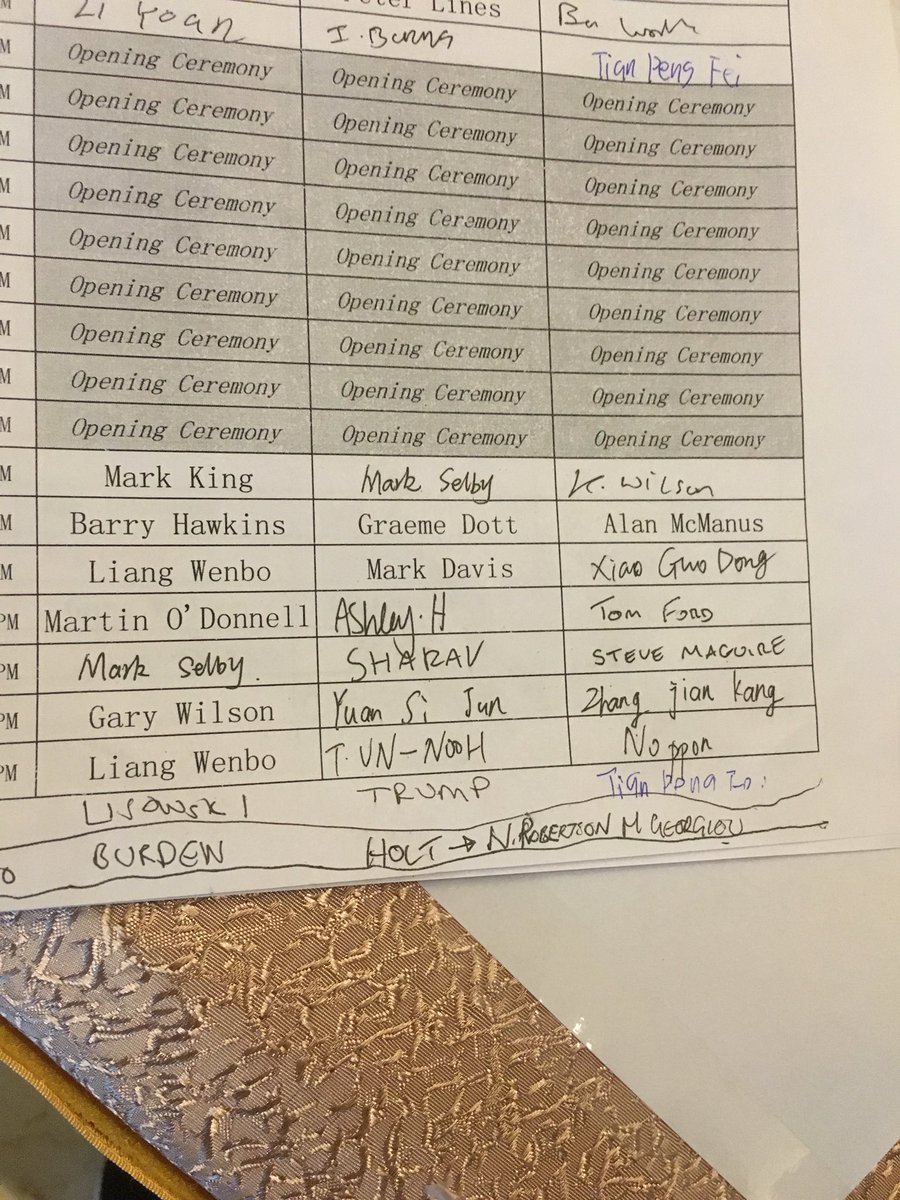 M Lines
Li Yoan I. Burns
M Opening Ceremony Opening Ceremony Tian Peng Fei
M Opening Ceremony Opening Ceremony Opening Ceremony
M Opening Ceremony Opening Ceremony Opening Ceremony
M Opening Ceremony Opening Ceremony Opening Ceremony
M Opening Ceremony Opening Ceremony Opening Ceremony
M Opening Ceremony Opening Ceremony Opening Ceremony
M Opening Ceremony Opening Ceremony Opening Ceremony
M Opening Ceremony Opening Ceremony Opening Ceremony
M Opening Ceremony Opening Ceremony Opening Ceremony
M Mark King Mark Selby K. Wilson
M Barry Hawkins Graeme Dott Alan McManus
M Liang Wenbo Mark Davis Xiao Guo Dong
PM Martin O'Donnell Ashley.H Tom FORD
PM Mark Selby. SHARAV STEVE MAGUIRE
PM Gary Wilson Yuan Si Jun Zhang jian Kang
PM Liang Wenbo T. UN-NOOH Noppon
LISOWSKI TRUMP Tian
BURDEN HOLT → N. ROBERTSON M GEORGIOU